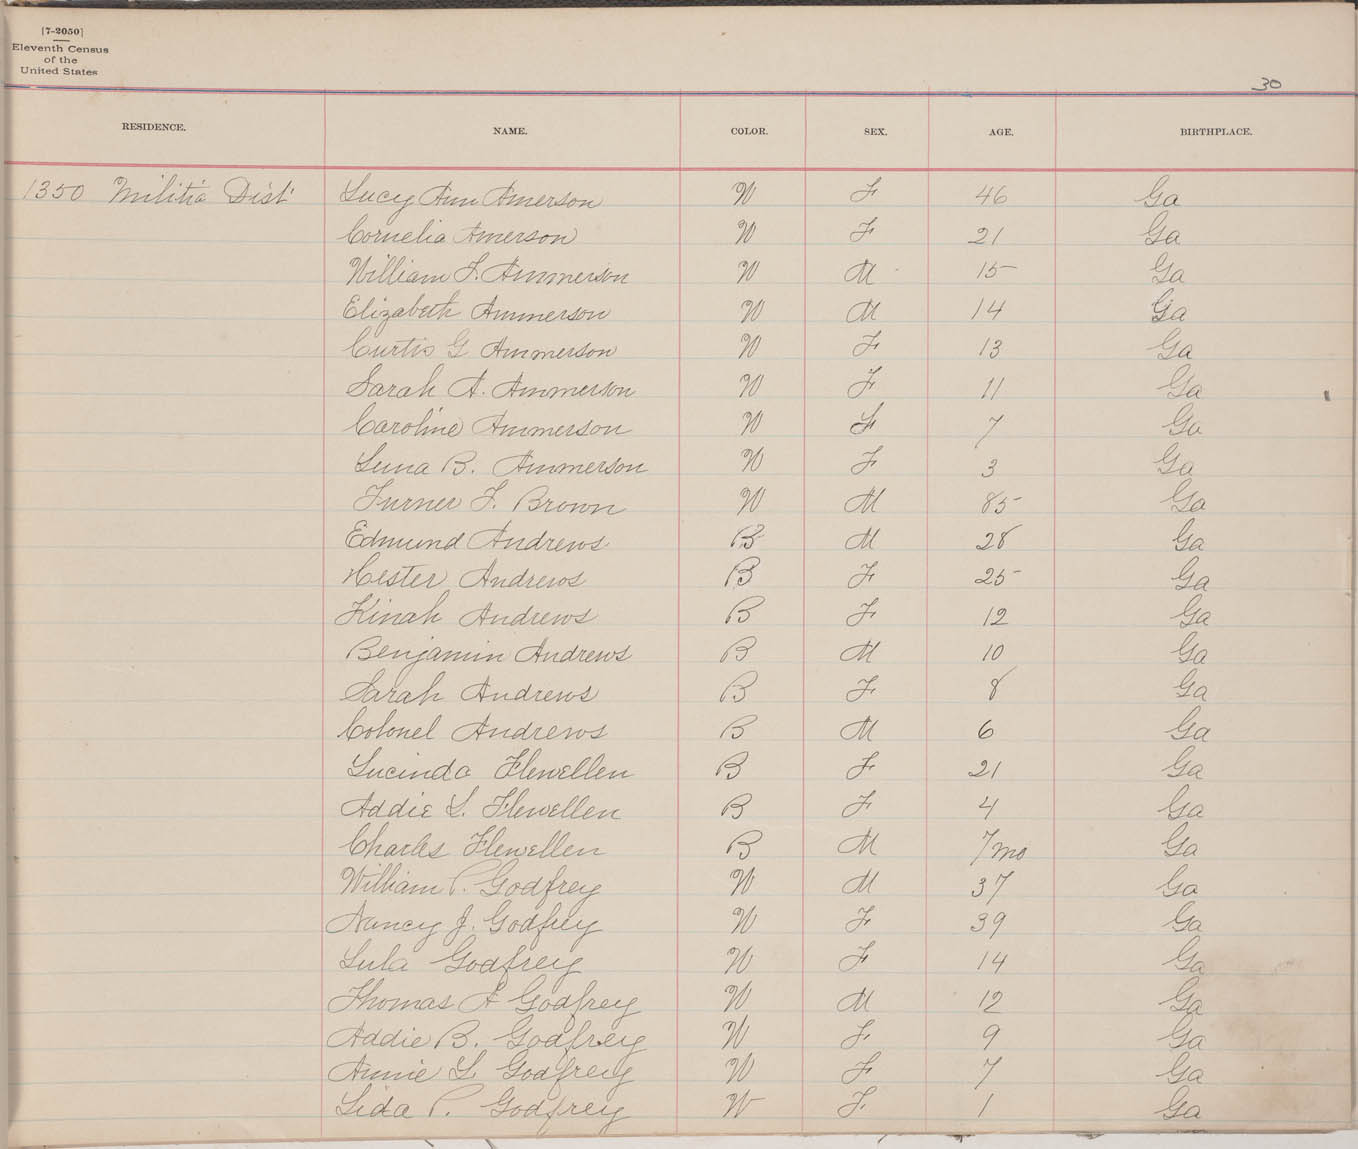 [7-2050]
Eleventh Census
of the
United States
30
RESIDENCE. NAME. COLOR. SEX. AGE. BIRTHPLACE.
1350 Militia Dist Lucy Ann Amerson W F 46 Ga
Cornelia Amerson W F 21 Ga
William F. Ammerson W M 15 Ga
Elizabeth Ammerson W M 14 Ga
Curtis G Ammerson W F 13 Ga
Sarah A. Ammerson W F 11 Ga
Caroline Ammerson W F 7 Ga
Luna B. Ammerson W F 3 Ga
Turner F. Brown W M 85 Ga
Edmund Andrews B M 28 Ga
Hester Andrews B F 25 Ga
Kinah Andrews B F 12 Ga
Benjamin Andrews B M 10 Ga
Sarah Andrews B F 8 Ga
Colonel Andrews B M 6 Ga
Lucinda Flewellen B F 21 Ga
Addie L. Flewellen B F 4 Ga
Charles Flewellen B M 7mo Ga
William P. Godfrey W M 37 Ga
Nancy J. Godfrey W F 39 Ga
Lula Godfrey W F 14 Ga
Thomas A Godfrey W M 12 Ga
Addie B. Godfrey W F 9 Ga
Annie L Godfrey W F 7 Ga
Lida P. Godfrey W F 1 Ga